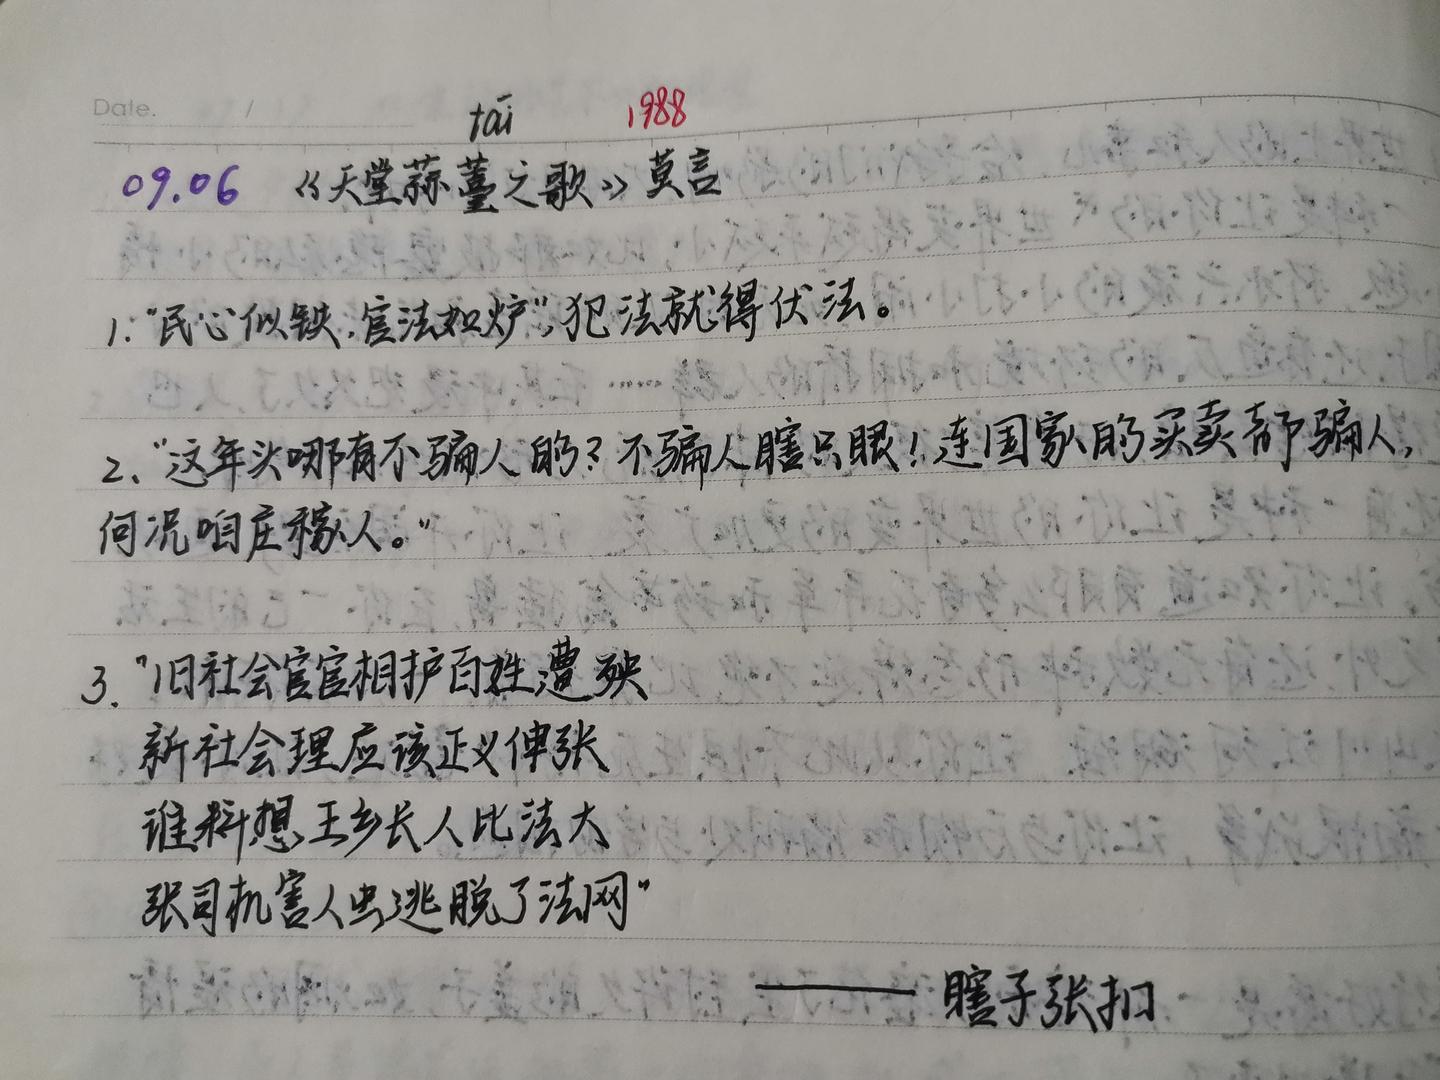 Date. /
tāi 1988
09.06 《天堂蒜薹之歌》莫言
1."民心似铁,官法如炉",犯法就得伏法。
2、"这年头哪有不骗人的?不骗人瞎只眼!连国家的买卖都骗人,
何况咱庄稼人。"
3."旧社会官官相护百姓遭殃
新社会理应该正义伸张
谁料想王乡长人比法大
张司机害人虫逃脱了法网"
——瞎子张扣